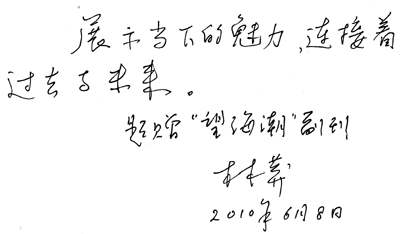 展示当下的魅力,连接着
过去与未来。
题赠“望海潮”副刊
林莽
2010年6月8日